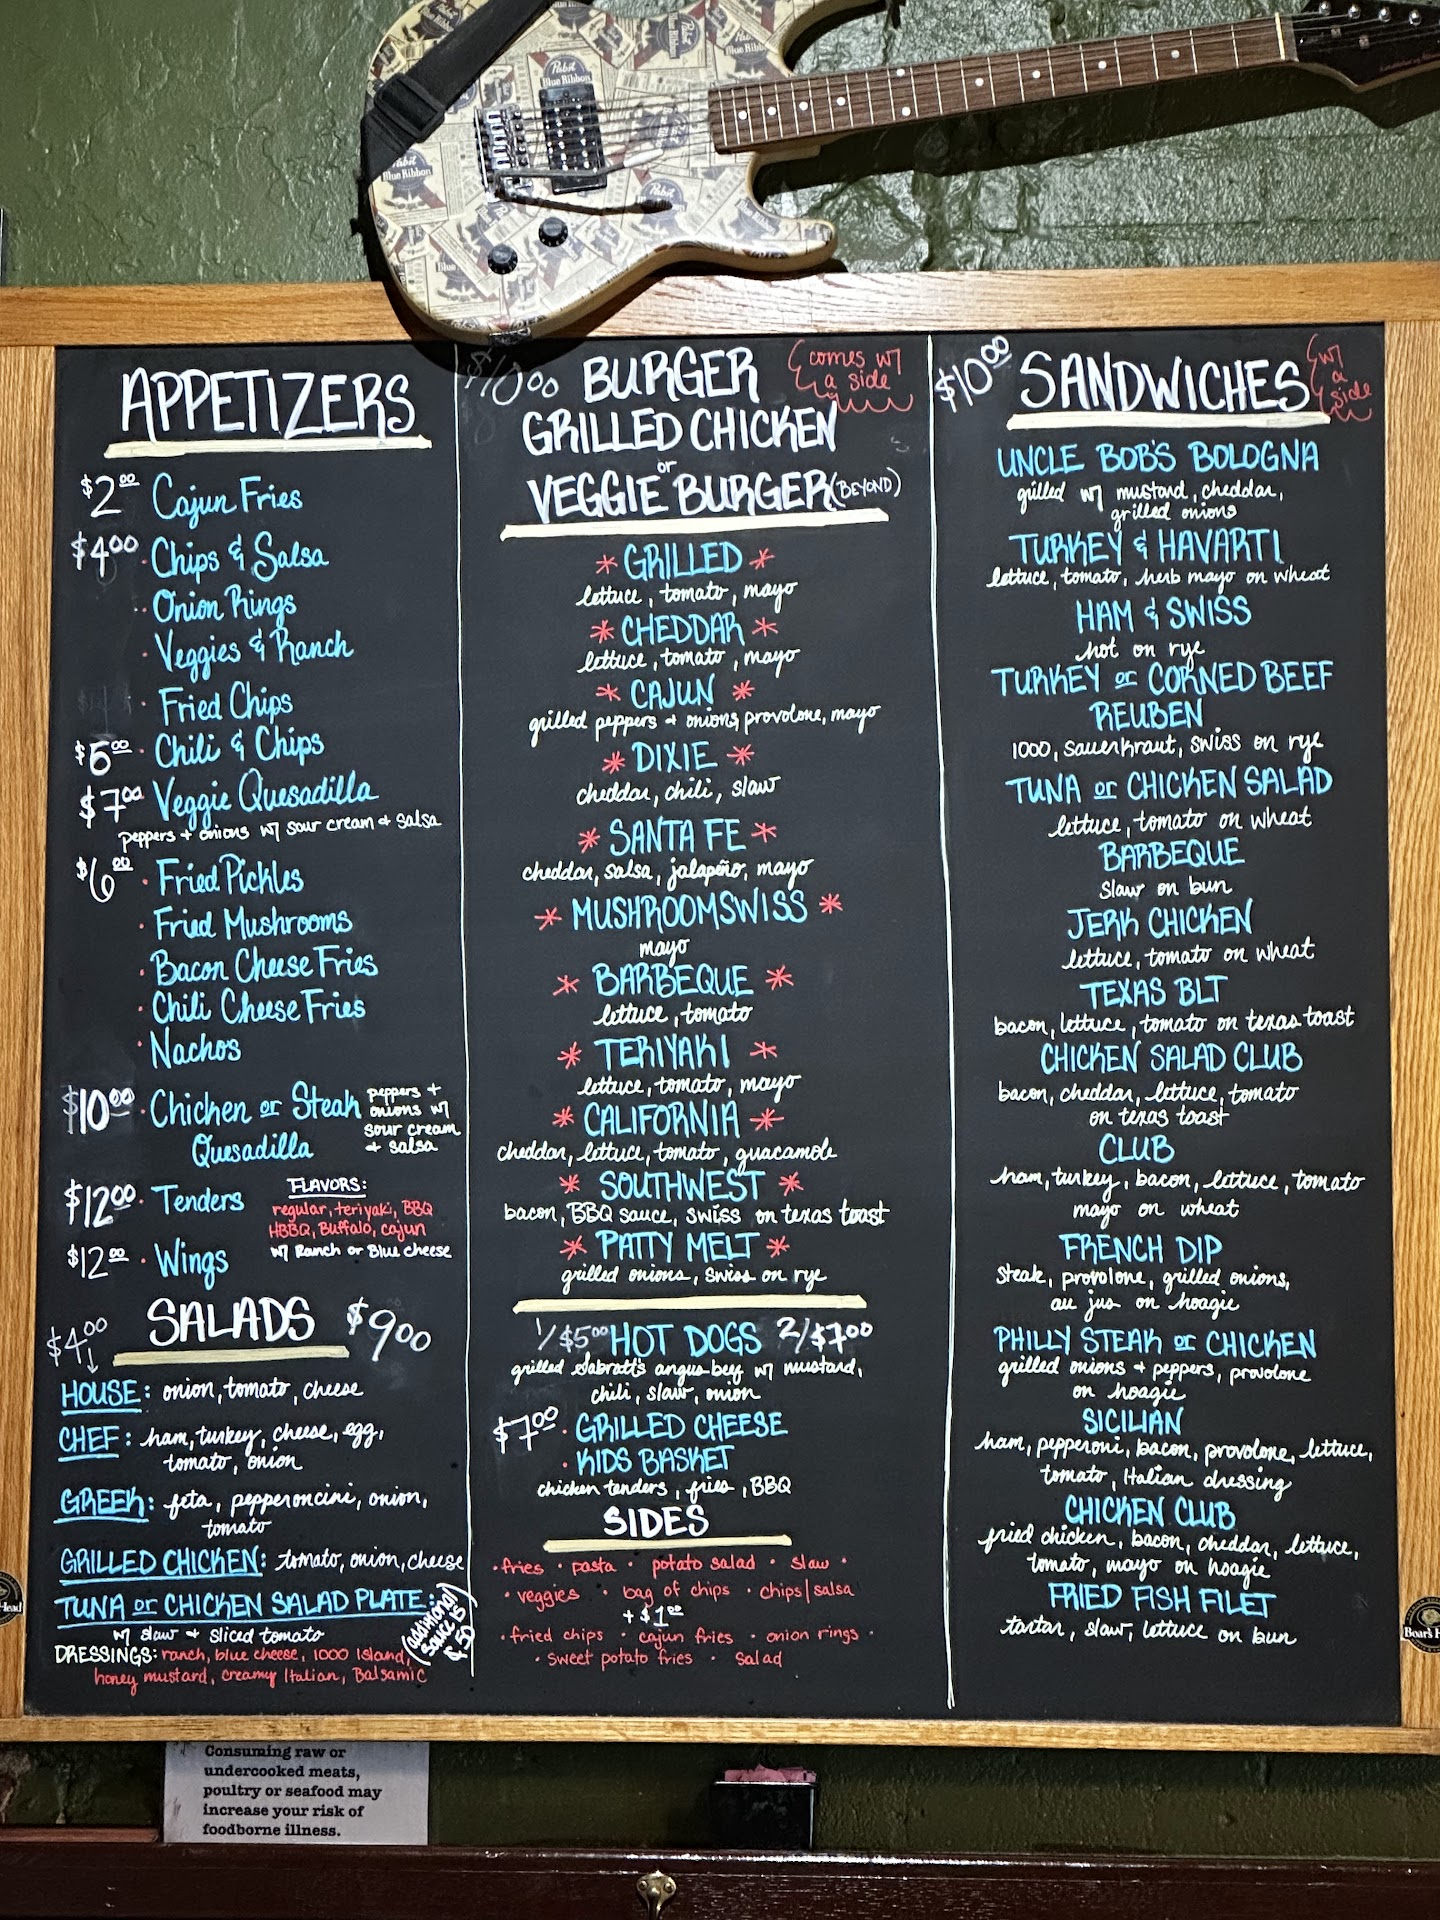 Pabst
Blue Ribbon
APPETIZERS
$2.00 Cajun Fries
$4.00 · Chips & Salsa
· Onion Rings
· Veggies & Ranch
· Fried Chips
$5.00 · Chili & Chips
$7.00 Veggie Quesadilla
peppers + onions w/ sour cream + salsa
$6.00 · Fried Pickles
· Fried Mushrooms
· Bacon Cheese Fries
· Chili Cheese Fries
· Nachos
$10.00 · Chicken or Steak
Quesadilla
peppers +
onions w/
sour cream
+ salsa
$12.00 · Tenders
$12.00 · Wings
FLAVORS:
regular, teriyaki, BBQ
HBBQ, Buffalo, cajun
w/ Ranch or Blue cheese
$4.00 SALADS $9.00
HOUSE: onion, tomato, cheese
CHEF: ham, turkey, cheese, egg,
tomato, onion
GREEK: feta, pepperoncini, onion,
tomato
GRILLED CHICKEN: tomato, onion, cheese
TUNA or CHICKEN SALAD PLATE:
w/ slaw + sliced tomato
DRESSINGS: ranch, blue cheese, 1000 Island,
honey mustard, creamy Italian, Balsamic
(additional
sauce is
$.50)
$10.00 BURGER
comes w/
a side
GRILLED CHICKEN
or
VEGGIE BURGER (BEYOND)
* GRILLED *
lettuce, tomato, mayo
* CHEDDAR *
lettuce, tomato, mayo
* CAJUN *
grilled peppers + onions, provolone, mayo
* DIXIE *
cheddar, chili, slaw
* SANTA FE *
cheddar, salsa, jalapeño, mayo
* MUSHROOMSWISS *
mayo
* BARBEQUE *
lettuce, tomato
* TERIYAKI *
lettuce, tomato, mayo
* CALIFORNIA *
cheddar, lettuce, tomato, guacamole
* SOUTHWEST *
bacon, BBQ sauce, swiss on texas toast
* PATTY MELT *
grilled onions, swiss on rye
1/$5.00 HOT DOGS 2/$7.00
grilled Sabratt's angus beef w/ mustard,
chili, slaw, onion
$7.00 · GRILLED CHEESE
· KIDS BASKET
chicken tenders, fries, BBQ
SIDES
· fries · pasta · potato salad · slaw ·
· veggies · bag of chips · chips/salsa
+ $1.00
· fried chips · cajun fries · onion rings ·
· sweet potato fries · salad
$10.00 SANDWICHES
w/
a
side
UNCLE BOB'S BOLOGNA
grilled w/ mustard, cheddar,
grilled onions
TURKEY & HAVARTI
lettuce, tomato, herb mayo on wheat
HAM & SWISS
hot on rye
TURKEY or CORNED BEEF
REUBEN
1000, sauerkraut, swiss on rye
TUNA or CHICKEN SALAD
lettuce, tomato on wheat
BARBEQUE
slaw on bun
JERK CHICKEN
lettuce, tomato on wheat
TEXAS BLT
bacon, lettuce, tomato on texas toast
CHICKEN SALAD CLUB
bacon, cheddar, lettuce, tomato
on texas toast
CLUB
ham, turkey, bacon, lettuce, tomato
mayo on wheat
FRENCH DIP
steak, provolone, grilled onions,
au jus on hoagie
PHILLY STEAK or CHICKEN
grilled onions + peppers, provolone
on hoagie
SICILIAN
ham, pepperoni, bacon, provolone, lettuce,
tomato, Italian dressing
CHICKEN CLUB
fried chicken, bacon, cheddar, lettuce,
tomato, mayo on hoagie
FRIED FISH FILET
tartar, slaw, lettuce on bun
Head
Boar's H
Consuming raw or
undercooked meats,
poultry or seafood may
increase your risk of
foodborne illness.